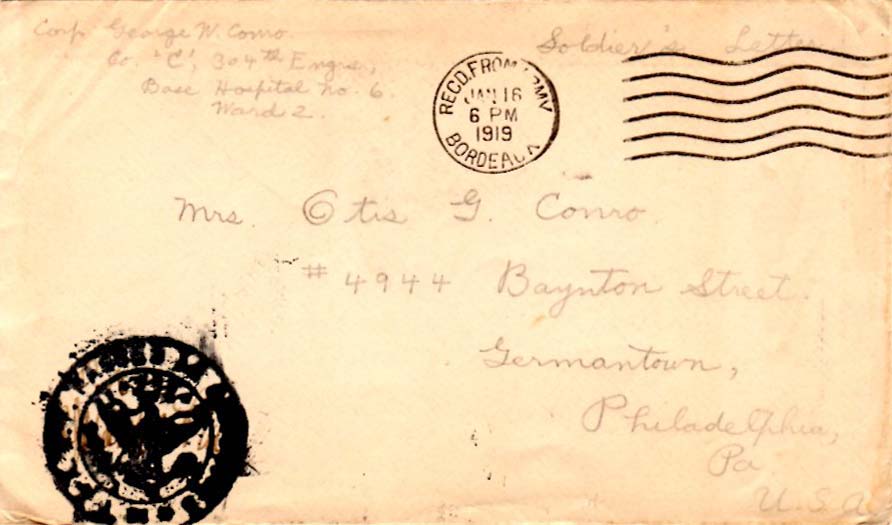 Corp George W. Conro. Soldier's Letter
Co. "C", 304th Engrs,
Base Hospital No. 6.
Ward 2.
RECD. FROM
JAN 16
6 PM
1919
BORDEAUX
Mrs. Otis G. Conro.
#4944 Baynton Street.
Germantown,
Philadelphia,
Pa.
U.S.A